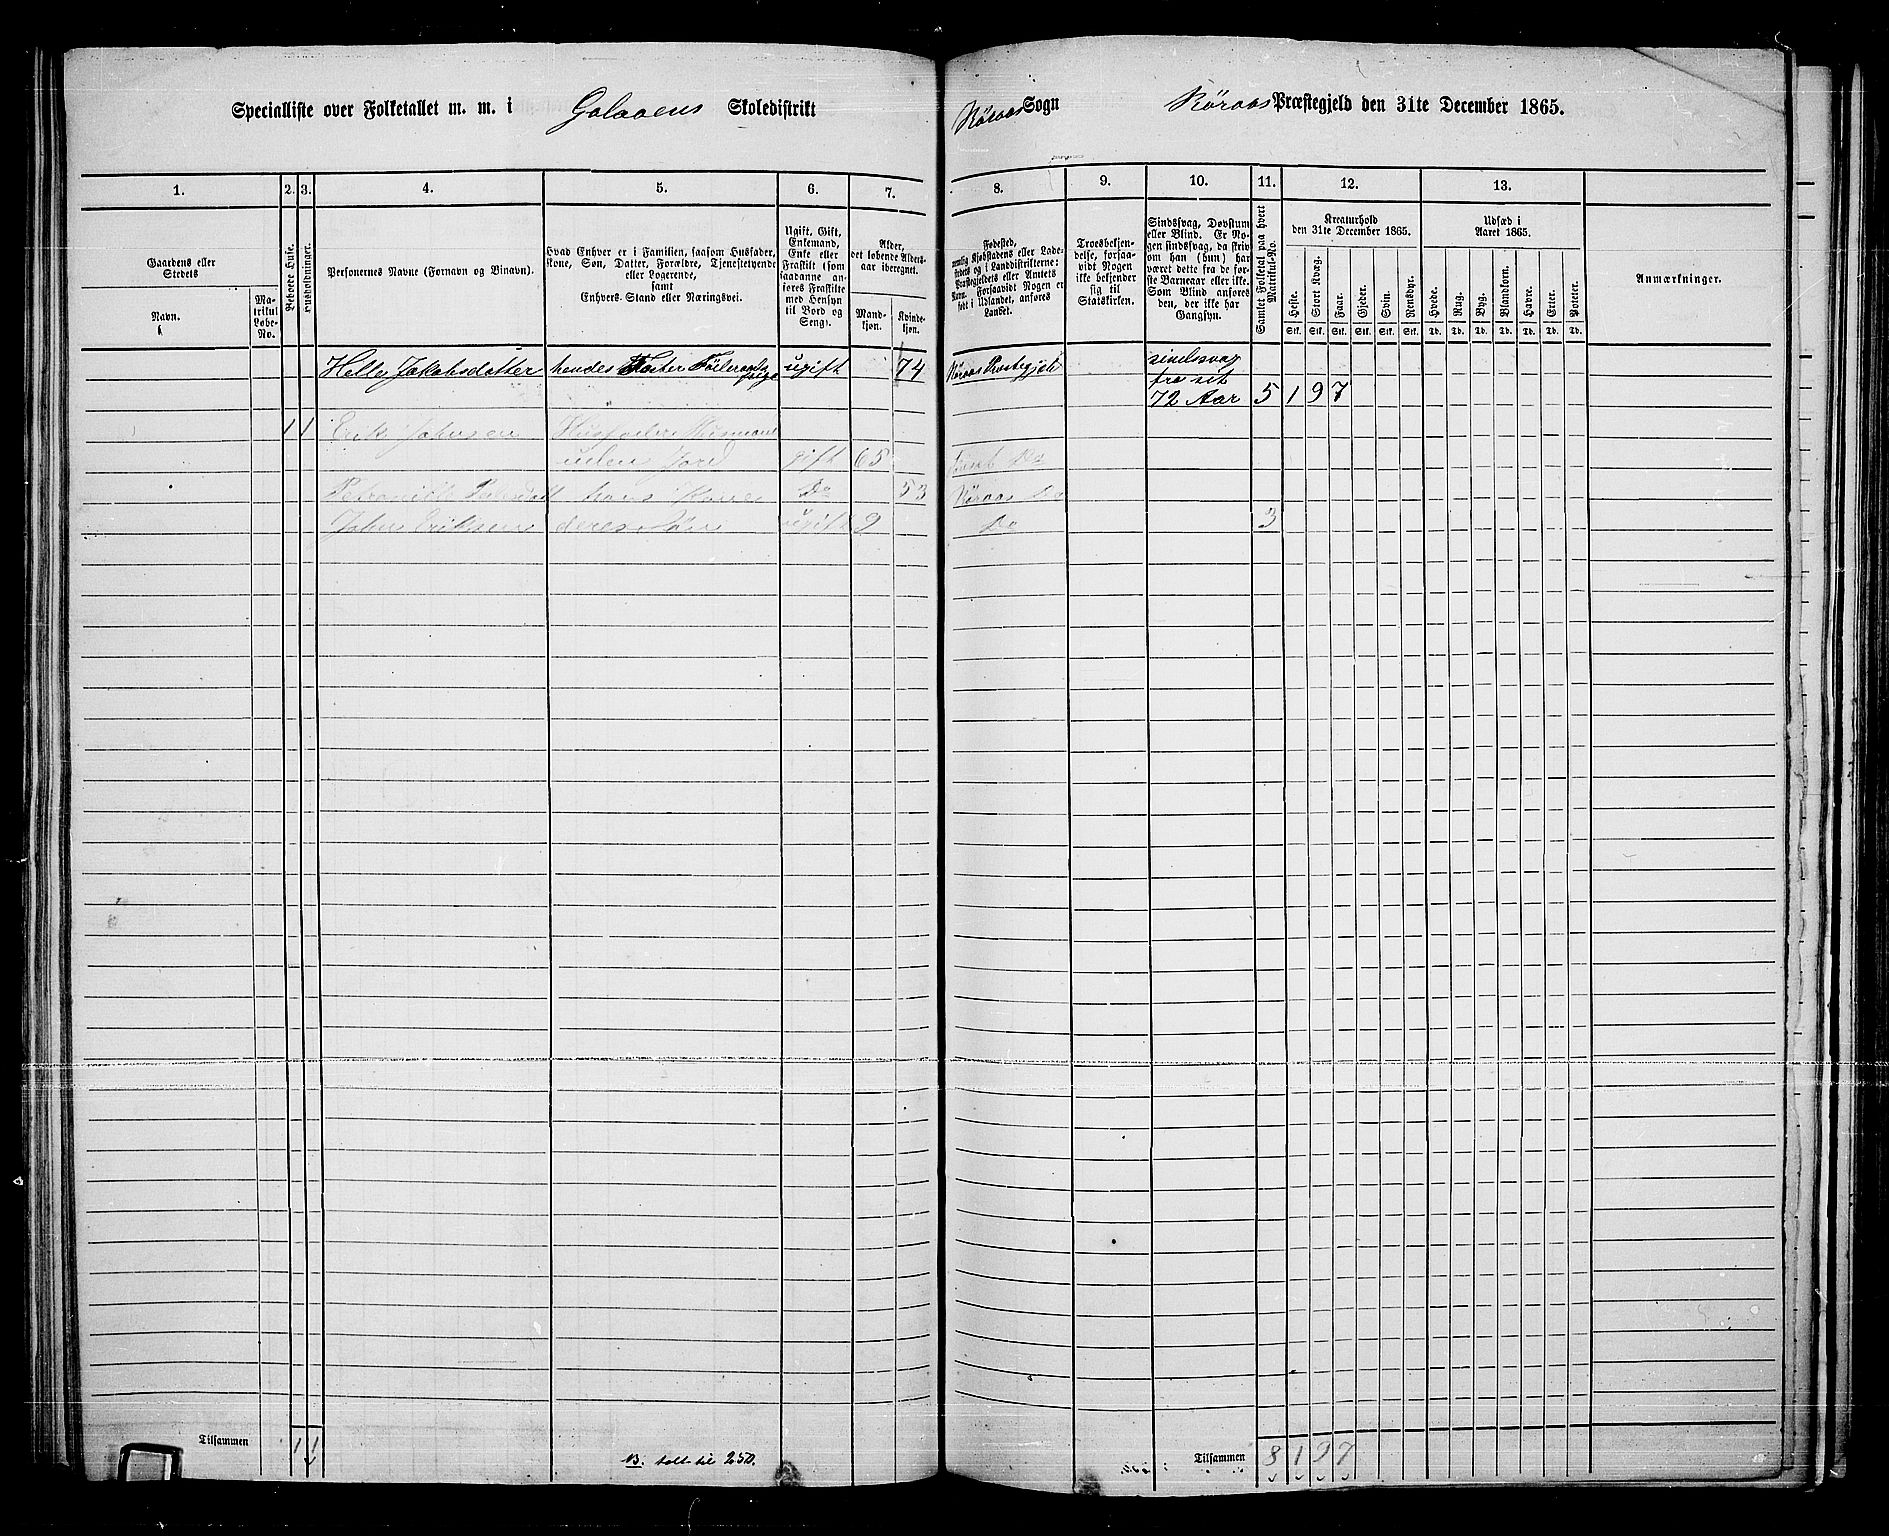 Specialliste over Folketallet m. m. i Galaaens Skoledistrikt
Røraas Sogn Røraas Præstegjeld den 31te December 1865.
1. 2. 3. 4. 5. 6. 7.
8. 9. 10. 11. 12. 13.
Gaardens eller
Stedets
Navn.
Ma-
trikul
Løbe-
No.
Beboede Huse.
Husholdninger.
Personernes Navne (Fornavn og Tilnavn).
Hvad Enhver er i Familien, saasom Husfader,
Kone, Søn, Datter, Forældre, Tjenestetyende
eller Logerende,
samt
Enhvers Stand eller Næringsvei.
Ugift, Gift,
Enkemand,
Enke eller
Fraskilt (som
saadanne an-
føres Fraskilte
med Hensyn
til Bord og
Seng).
Alder,
det løbende Alders-
aar iberegnet.
Mand-
kjøn.
Kvinde-
kjøn.
Fødested,
nemlig Kjøbstadens eller Lade-
stedets og i Landdistrikterne:
Præstegjeldets eller Amtets
Navn. Forsaavidt Nogen er
født i Udlandet, anføres
Landet.
Troesbekjen-
delse, forsaa-
vidt Nogen
ikke bekjender
sig til
Statskirken.
Sindssvag, Døvstum
eller Blind. Er No-
gen sindssvag, da skriv
om han (hun) har
været dette fra de før-
ste Barneaar eller ikke.
Som Blind anføres
den, der ikke har
Gangsyn.
Samlet Folketal paa hvert
Matrikul-No.
Kreaturhold
den 31te December 1865.
Heste. Stort Kvæg. Faar. Gjeder. Svin. Rensdyr.
Stk. Stk. Stk. Stk. Stk. Stk.
Udsæd i
Aaret 1865.
Hvede. Rug. Byg. Blandkorn. Havre. Erter. Poteter.
Td. Td. Td. Td. Td. Td. Td.
Anmærkninger.
Helle Jakobsdatter hendes ugift 74 Røraas Prestegjeld sindssvag
fra sit
72 Aar 5 1 9 7
1 1 Erik Johnsen Husfader Husmand
uden Jord gift 65 Do
hans Kone Do 53 Røraas Do
John Eriksen deres Søn ugift 9 Do 3
Tilsammen 1 1
talt til 250.
Tilsammen 8 1 9 7